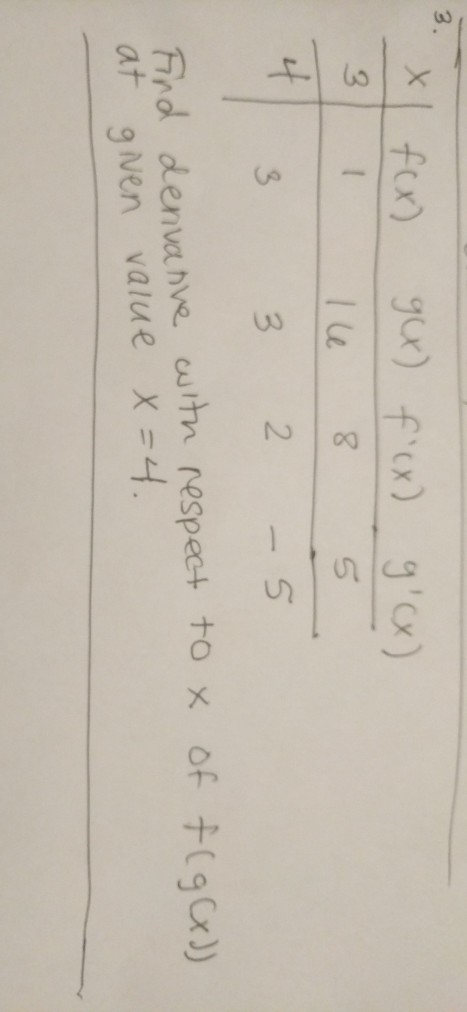 3.
x f(x) g(x) f'(x) g'(x)
3 1 16 8 5
4 3 3 2 -5
Find derivative with respect to x of f(g(x))
at given value x=4.